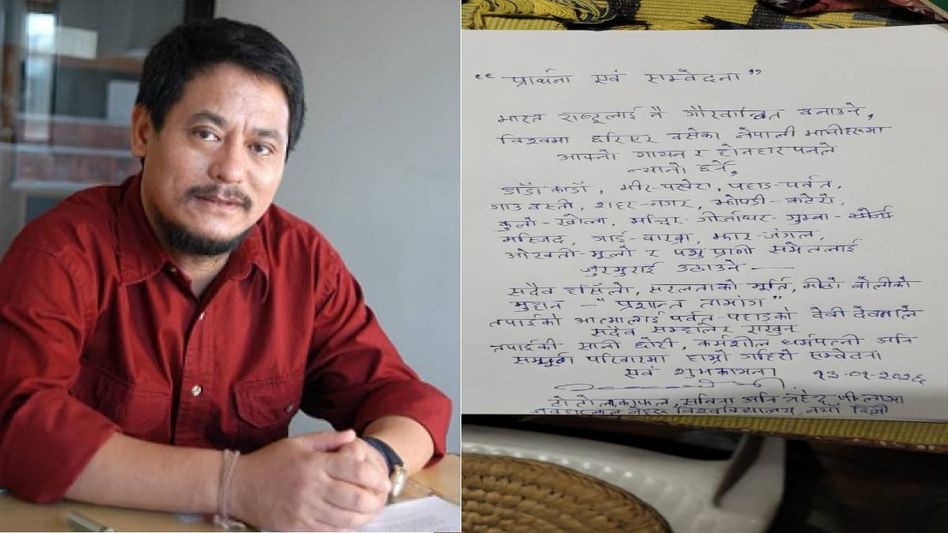 “ प्रार्थना एवं सम्वेदना ”
भारत राष्ट्रलाई नै गौरवान्वित बनाउने,
विश्वमा छरिएर बसेका नेपाली भाषीहरूमा
आफ्नो गायन र होनहारपनले
न्यानो छर्ने,
डाँडा-काँडा, भीर-पखेरा, पहाड-पर्वत,
गाउँ बस्ती, शहर-नगर, झोपडी-कटेरो,
कुलो-खोला, मन्दिर-गीर्जाघर-गुम्बा
मस्जिद, गाई-बाख्रा, झार-जंगल,
ओखती-मुलो र पशु प्राणी समेतलाई
जुरमुराई उठाउने —
सदैव हाँसिलो, सरलताको मूर्ति, मीठो बोलीको
मुहान - “प्रशान्त तामांग”
तपाईको आत्मालाई पर्वत-पहाडको देवी देवताले
सदैव सम्हालेर राखून
तपाईकी सानी छोरी, कर्मशील धर्मपत्नी अनि
सम्पूर्ण परिवारमा हाम्रो गहिरो सम्वेदना
एवं शुभकामना १३-०१-२०२६
सविता अनि
जवाहरलाल नेहरू विश्वविद्यालय, नयाँ दिल्ली